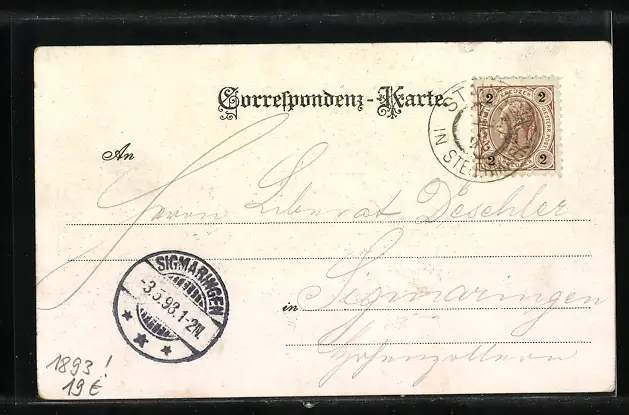 Correspondenz-Karte.
ST
IN STEIERMARK
2 KREUZER 2
2 2
An
Herrn Liberat Deschler
in Sigmaringen
Hohenzollern
SIGMARINGEN
-3.5.93.1-2N.
1893!
19€